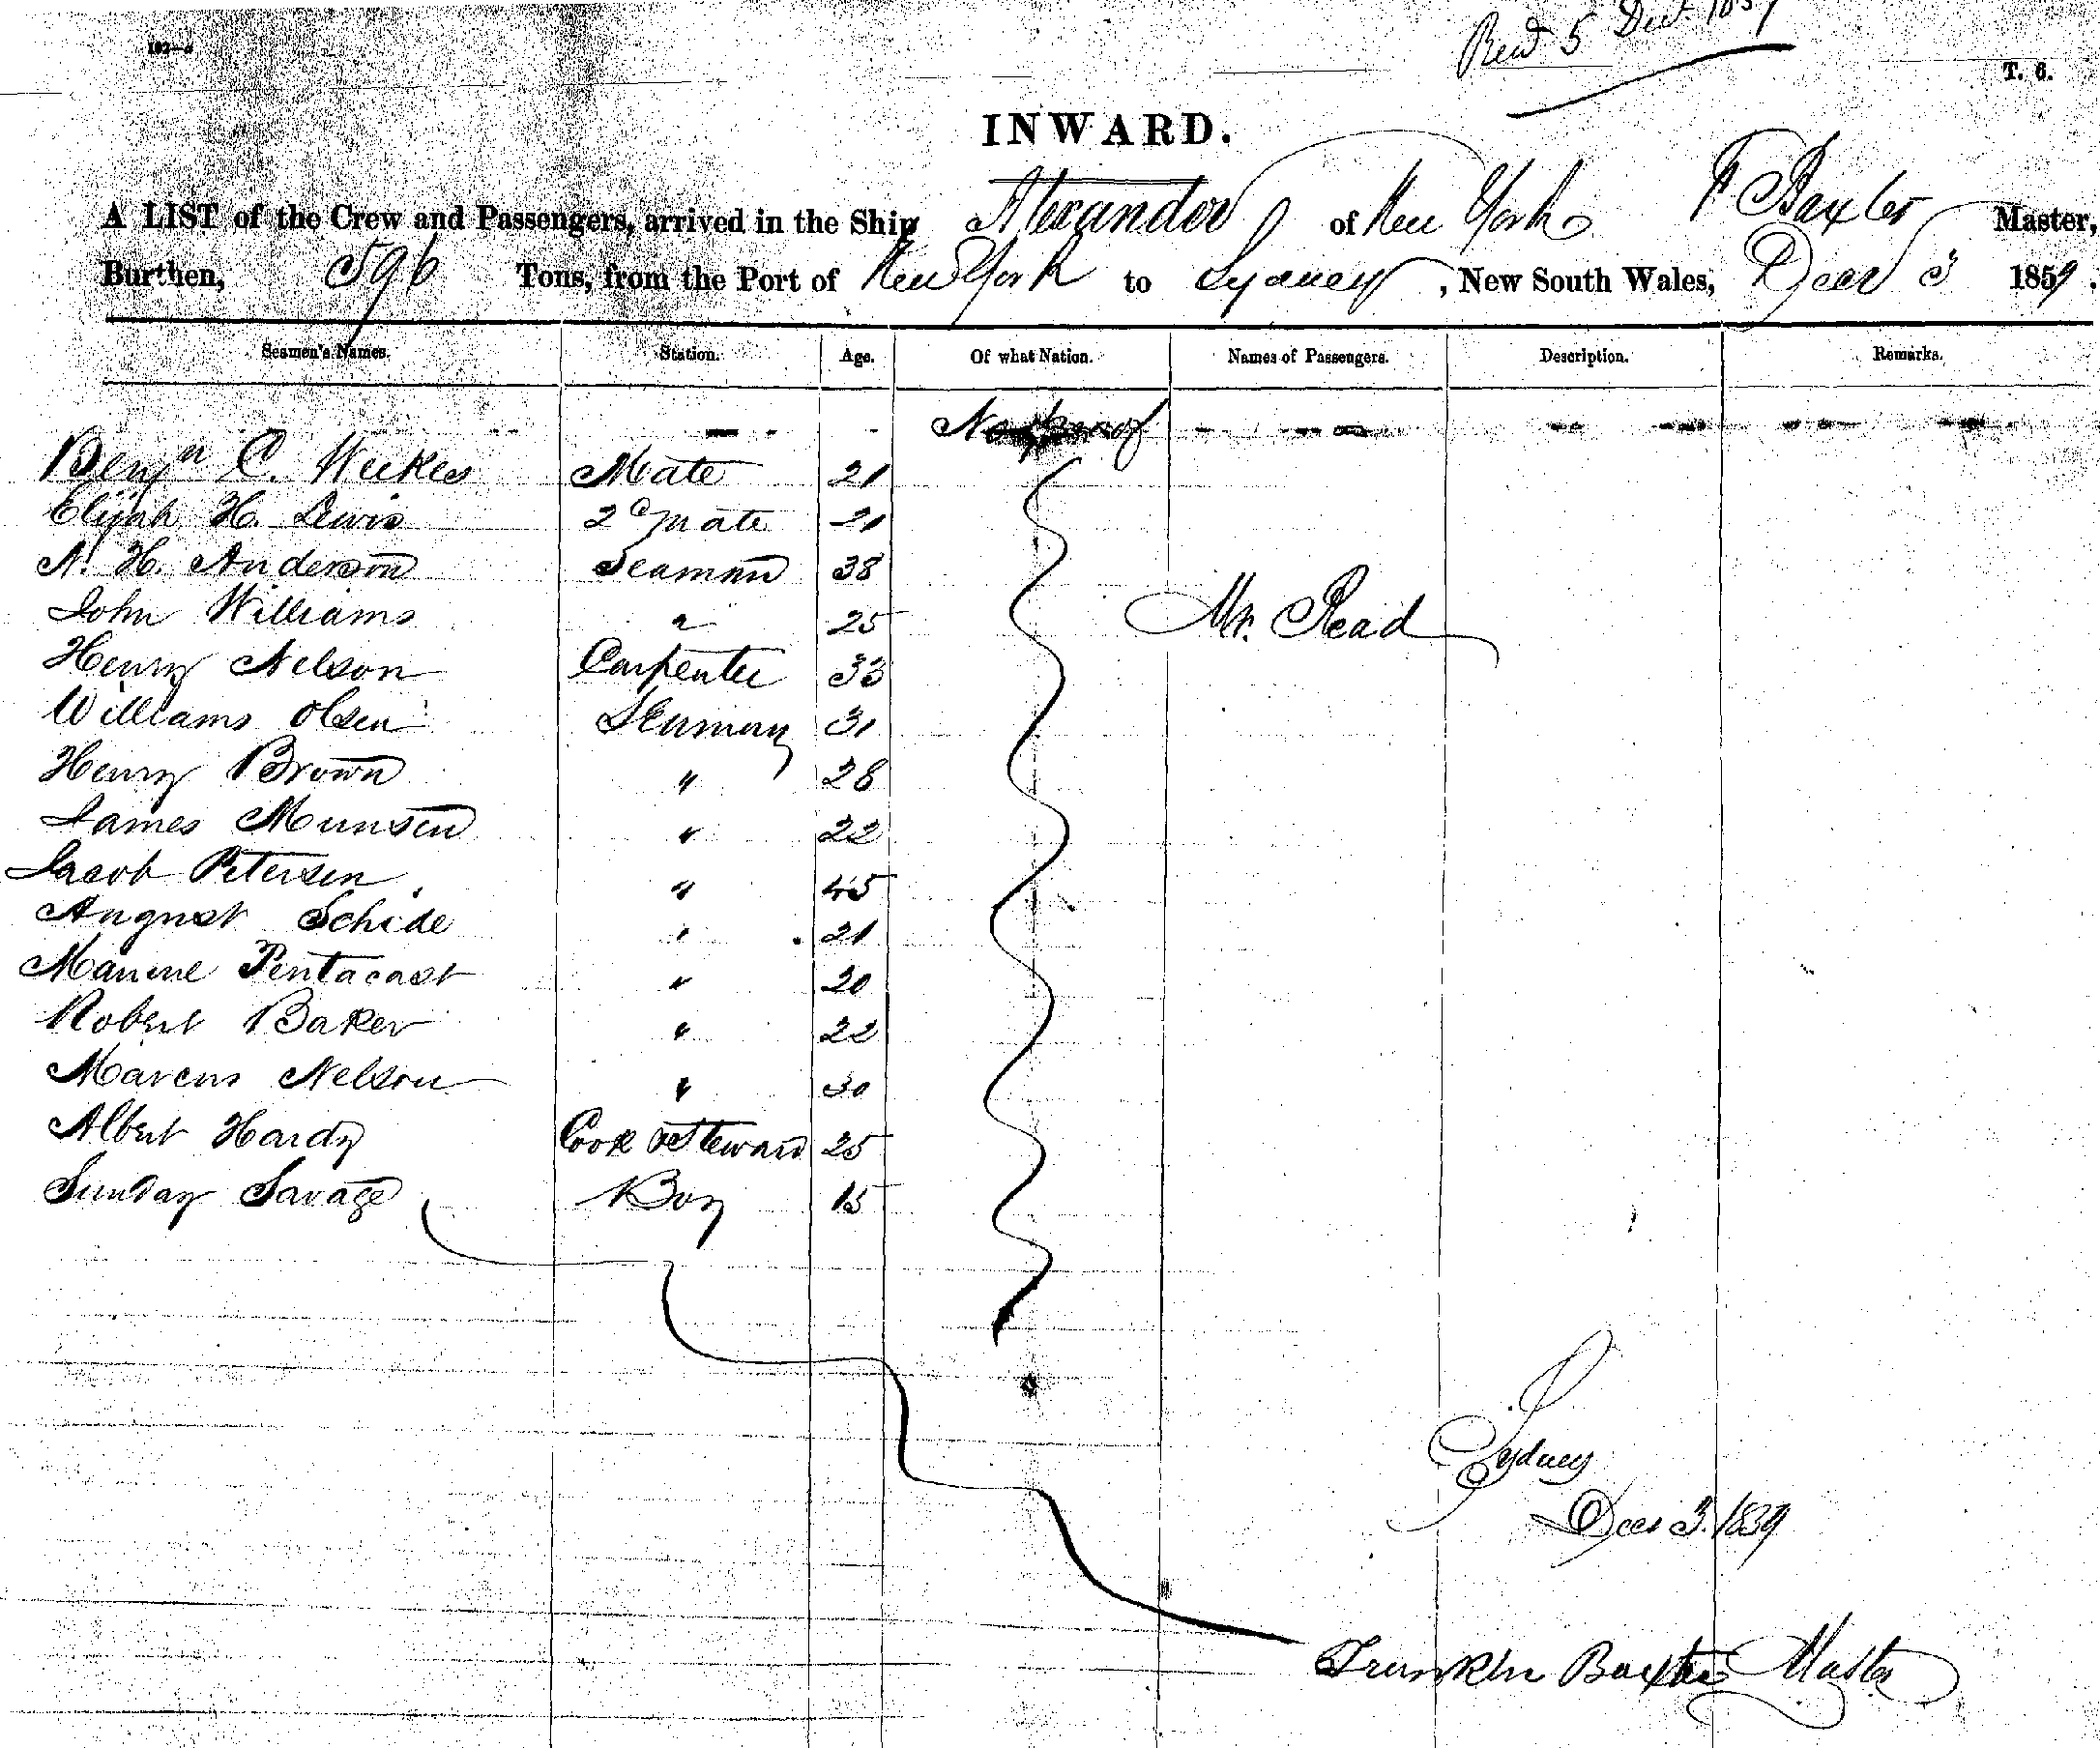 Recd 5 Decr 1859
T. 6.
INWARD.
A LIST of the Crew and Passengers, arrived in the Ship Alexander of New York F Baxter Master,
Burthen, 596 Tons, from the Port of New York to Sydney, New South Wales, Decr 3 1859.
Seamen's Names. Station. Age. Of what Nation. Names of Passengers. Description. Remarks.
Benjn C. Weekes Mate 21
Elijah H. Lewis 2d Mate 21
A. H. Anderson Seaman 38
John Williams " 25 Mr. Read
Henry Nelson Carpenter 33
Williams Olsen Seaman 31
Henry Brown " 28
James Munsen " 22
Jacob Petersen " 45
August Schide " 21
Pentacast " 20
Robert Baker " 22
Marcus Nelson " 30
Albert Hardy Cook & Steward 25
Sunday Savage Boy 15
Sydney
Decr 3. 1859
Franklin Baxter Master